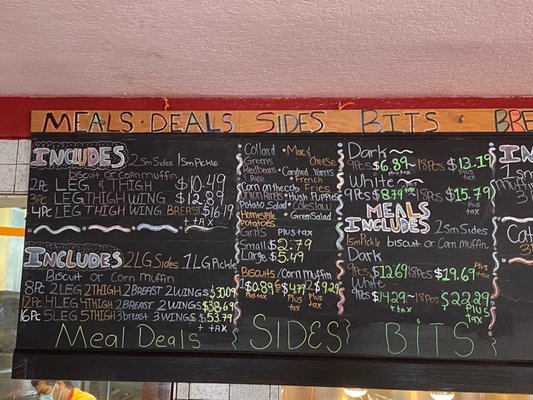 MEALS·DEALS SIDES BITS BRE
INCLUDES 2 Sm Sides 1 Sm Pickle
biscuit or corn muffin
2pc LEG & THIGH $10.49
3pc LEG THIGH WING $12.89
4pc LEG THIGH WING BREAST $16.19
+ tax
INCLUDES 2 LG Sides 1 LG Pickle
Biscuit or Corn muffin
8pc 2 LEG 2 THIGH 2 BREAST 2 WINGS
12pc 4 LEG 4 THIGH 2 BREAST 2 WINGS $38.69
16Pc 5 LEG 5 THIGH 3 breast 3 WINGS $53.79
+ tax
Meal Deals
Collard Greens
Red beans & Rice
Corn on the cob
Potato Salad
Homestyle Potatoes
Grits
• Mac & Cheese
• Candied Yams
• French Fries
• Hush Puppies
• Coleslaw
• Green Salad
plus tax
Small $2.79
Large $5.49
Biscuits / Corn muffin
$0.89 $4.79 $9.29
Plus tax Plus tax Plus tax
SIDES
Dark
9Pcs $6.89 18Pcs $13.19
plus tax
White
9Pcs 18Pcs $15.79
plus tax
MEALS INCLUDES 2 Sm Sides
1 Sm Pickle biscuit or corn muffin
Dark
9Pcs $12.69 18Pcs $19.69 plus tax
White
9Pcs $14.29 18Pcs $22.29
plus tax Plus tax
BITS
IN